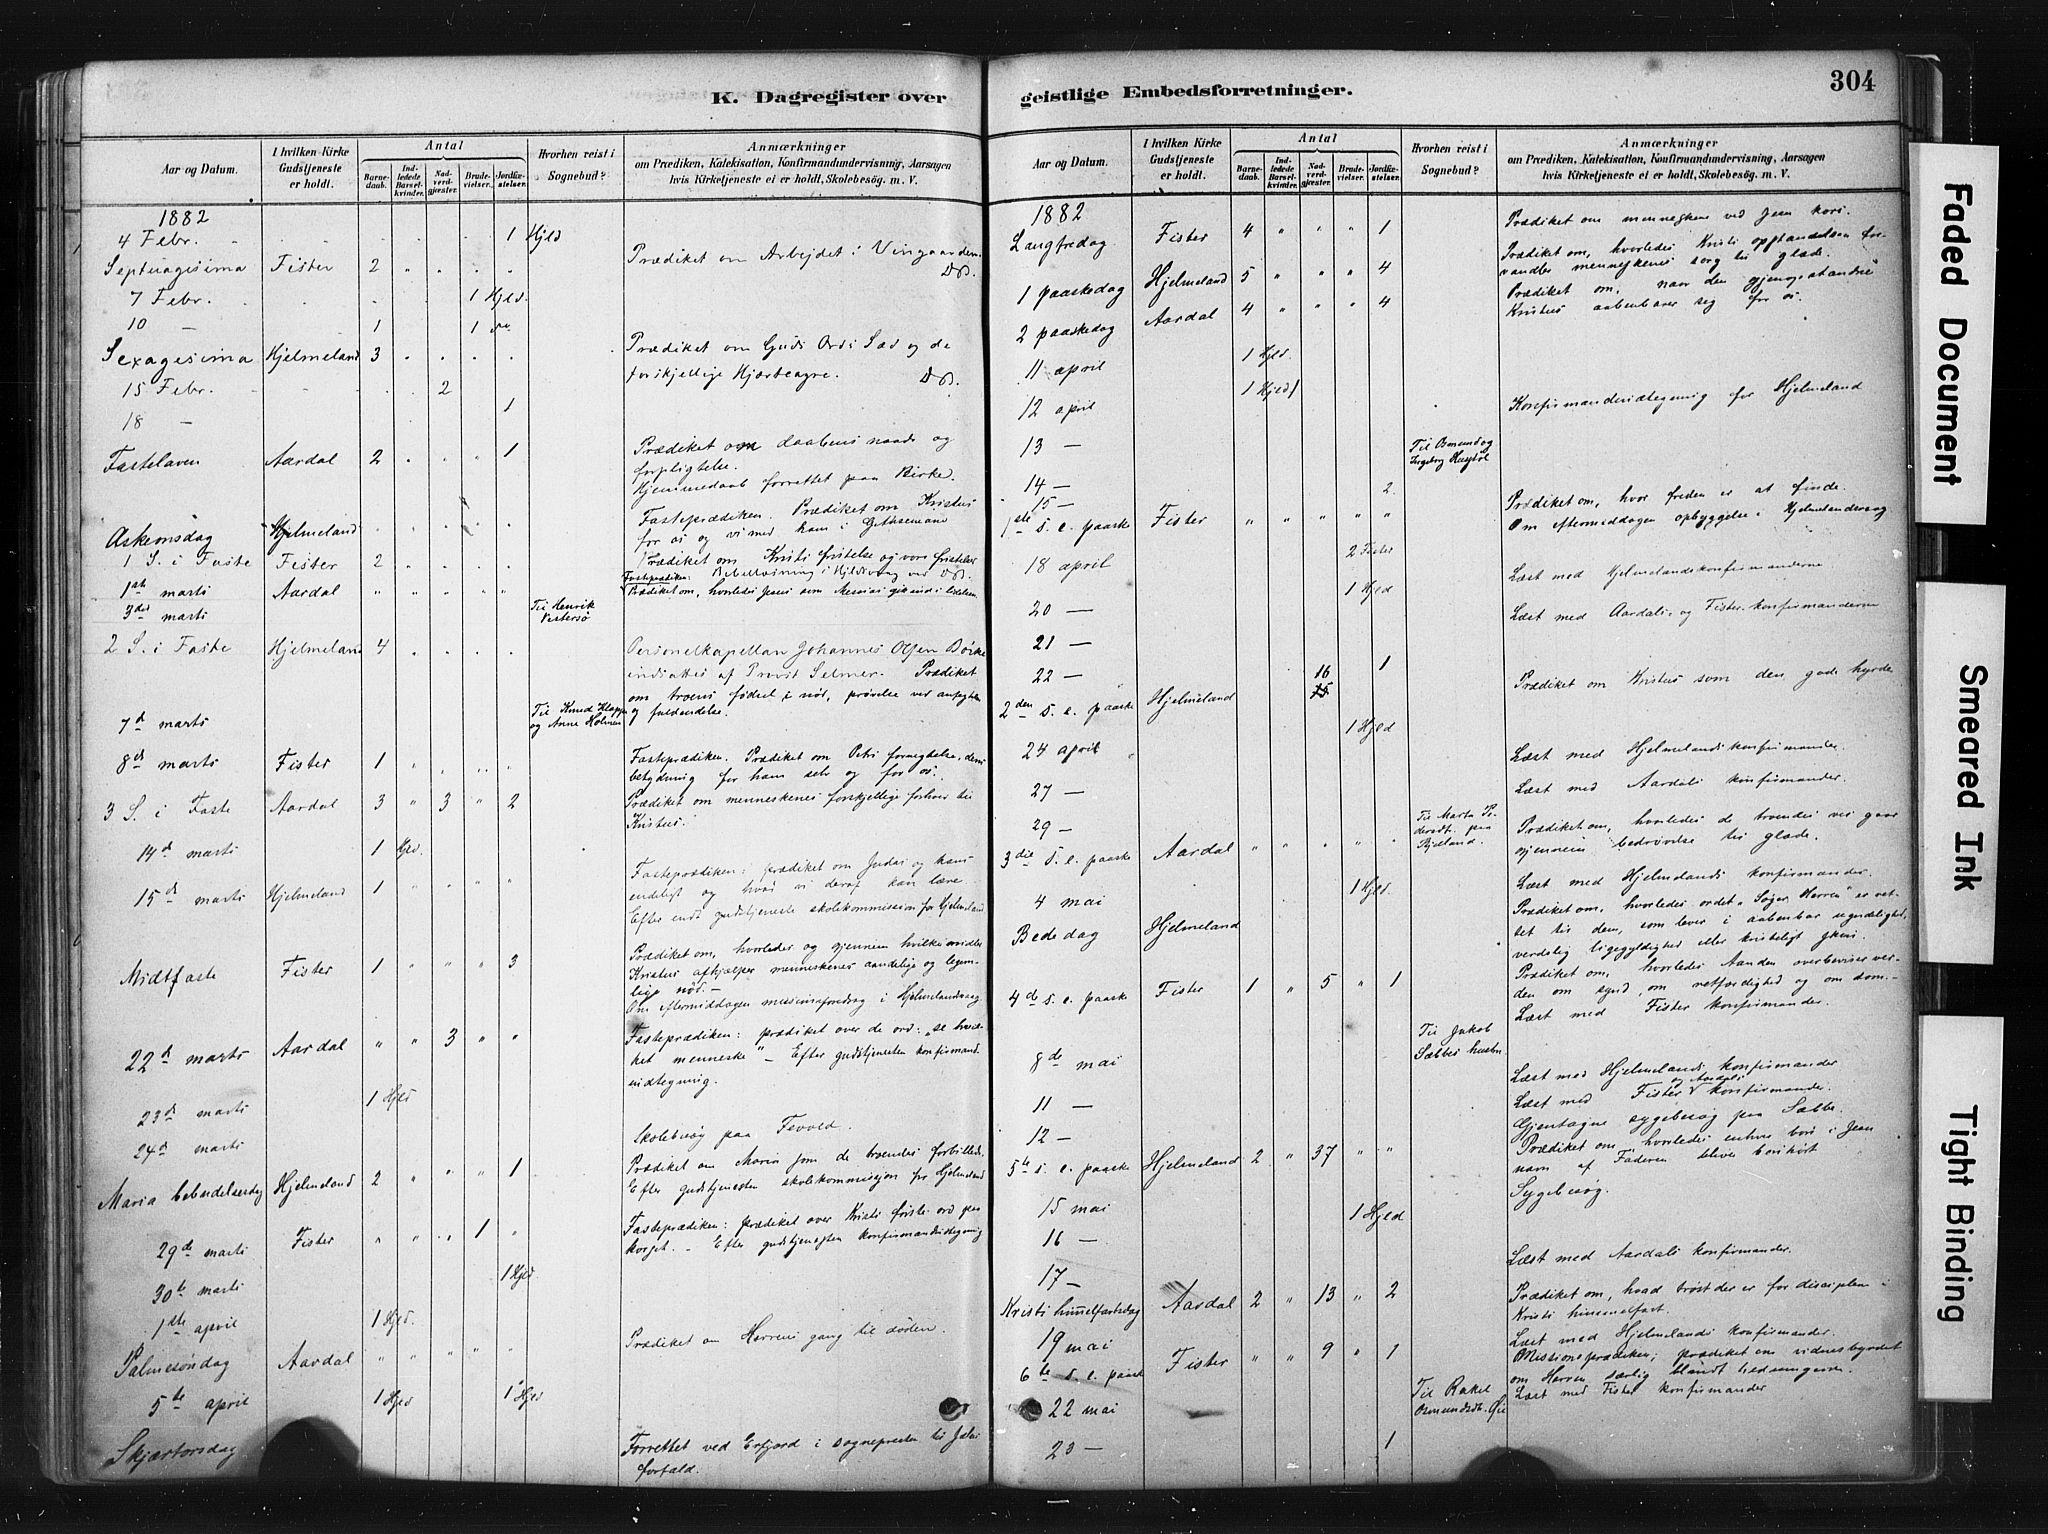 K. Dagregister over
Aar og Datum.
I hvilken Kirke Gudstjeneste er holdt.
Antal
Barnedaab.
Indledede Barselkvinder.
Nadverdgjester.
Brudevielser.
Jordfæstelser.
Hvorhen reist i Sognebud?
Anmærkninger
om Prædiken, Katekisation, Konfirmandundervisning, Aarsagen
hvis Kirketjeneste ei er holdt, Skolebesög. m. V.
1882
4 Febr. 1 Hjld
Septuagesima Fister 2 Prædiket om Arbejdet i Vingaarden.
7 Febr. 1 Hjld.
10 — 1 1
Sexagesima Hjelmeland 3 Prædiket om Guds Ords Sæd og de
forskjellige Hjerteagre.
15 Febr. 2
18 — 1
Fastelaven Aardal 2 1 Prædiket om daabens naade og
forpligtelse.
Hjemmedaab forrettet paa Birke.
Askeonsdag Hjelmeland Fasteprædiken. Prædiket om Kristus
for os og vi med ham i Gethsemane
1 S. i Faste Fister 2 Prædiket om Kristi fristelse og vore fristelser
1ste marts Aardal Prædiket om, hvorledes Jesus som Messias
3die marts Til Henrik Vestersø
2 S. i Faste Hjelmeland 4 Personelkapellan Johannes Olsen Børke
indsættes af Provst Selmer. Prædiket
om troens fødsel i nød, prøvelse ved anfegtelse
og fuldendelse.
7d marts Til Knud Klappe og Anne Holmen
8d marts Fister 1 Fasteprædiken. Prædiket om Petri fornegtelse, dens
betydning for ham selv og for os.
3 S. i Faste Aardal 3 " 3 " 2 Prædiket om menneskenes forskjellige forhold til
Kristus.
14d marts 1 Hjld.
15d marts Hjelmeland 1 Fasteprædiken: prædiket om Judas og hans
endeligt og hvad vi deraf kan lære.
Efter endt gudstjeneste skolekommission for Hjelmeland
Midtfaste Fister 1 " " " 3 Prædiket om, hvorledes og gjennem hvilke midler
Kristus afhjælper menneskenes aandelige og legem-
lige nød. —
Om eftermiddagen missionsforedrag i Hjelmelandsvaag
22d marts Aardal " " 3 " " Fasteprædiken: prædiket over de ord: "se hvil-
ket menneske" — Efter gudstjenesten konfirmand-
indtegning.
23d marts 1 Hjld
24d marts Skolebesøg paa Tevold.
Maria bebudelsesdag Hjelmeland 2 " " " 1 Prædiket om Maria som de troendes forbillede.
Efter gudstjenesten skolekommission for Hjelmeland
29de marts Fister " " " 1 " Fasteprædiken: prædiket over Kristi første ord paa
korset. — Efter gudstjenesten konfirmandindtegning
30te marts 1 Hjld
1ste april 1 Hjld.
Palmesøndag Aardal " " " " " Prædiket om Herrens gang til døden.
5te april 1 Hjld 1 Hjld
Skjærtorsdag Forrettet ved Erfjord i sognepresten til Jelse
forfald.
geistlige Embedsforretninger.
304
Aar og Datum.
I hvilken Kirke Gudstjeneste er holdt.
Antal
Barnedaab.
Indledede Barselkvinder.
Nadverdgjester.
Brudevielser.
Jordfæstelser.
Hvorhen reist i Sognebud?
Anmærkninger
om Prædiken, Katekisation, Konfirmandundervisning, Aarsagen
hvis Kirketjeneste ei er holdt, Skolebesög. m. V.
1882
Langfredag Fister 4 " " " 1 Prædiket om menneskene ved Jesu kors.
1 paaskedag Hjelmeland 5 " " " 4 Prædiket om, hvorledes Kristi opstandelse for-
vandler menneskenes sorg til glæde.
2 paaskedag Aardal 4 " " " 4 Prædiket om, naar den gjenopstandne
Kristus aabenbarer sig for os.
11 april 1 Hjld.
12 april 1 Hjld
13 — Til Osmund og Ingeborg Konfirmandindtegning for Hjelmeland
14 —
15 — 2
1ste s. e. paaske Fister " " " " " Prædiket om, hvor freden er at finde.
Om eftermiddagen opbyggelse i Hjelmelandsvaag
18 april 2 Fister
20 — 1 Hjld Læst med Hjelmelandskonfirmanderne
21 — Læst med Aardals- og Fister-konfirmanderne
22 — 1
2den s. e. paaske Hjelmeland 16 Prædiket om Kristus som den gode hyrde
24 april 1 Hjld
27 — Læst med Hjelmelands konfirmander.
29 — Til Marta Pedersdt. paa Læst med Aardals konfirmander.
3die s. e. paaske Aardal " " " " " Prædiket om, hvorledes de troendes vei gaar
gjennem bedrøvelse til glæde.
4 mai 1 Hjld. Læst med Hjelmelands konfirmander.
Bededag Hjelmeland Prædiket om, hvorledes ordet "Søger Herren" er ret-
tet til dem, som lever i aabenbar ugudelighed,
verdslig ligegyldighed eller kristeligt skin.
4de s. e. paaske Fister 1 " 5 " 1 Prædiket om, hvorledes Aanden overbeviser ver-
den om synd, om retfærdighed og om dom.
Læst med Fister konfirmander.
8de mai Til Jakob Sæbbes hustru
11 — Læst med Hjelmelands konfirmander
12 — Læst med Fister og Aardals konfirmander.
Gjentagne sygebesøg paa Sæbbe.
5te s. e. paaske Hjelmeland 2 " 37 " " Prædiket om, hvorledes enhver bøn i Jesu
navn af Faderen bliver bønhørt
15 mai Sygebesøg.
16 — 1 Hjld
17 — Læst med Aardals konfirmander.
Kristi himmelfartsdag Aardal 2 " 13 " 2 Prædiket om, hvad trøst der er for disciplen i
Kristi himmelfart.
19 mai Læst med Hjelmelands konfirmander.
6te s. e. paaske Fister " " 9 " 1 Missionsprædiken; prædiket om vidnesbyrdet
om Herren særlig blandt hedningerne.
22 mai Til Rakel Osmundsdt. Læst med Fister konfirmander
23 — 1
Faded Document
Smeared Ink
Tight Binding